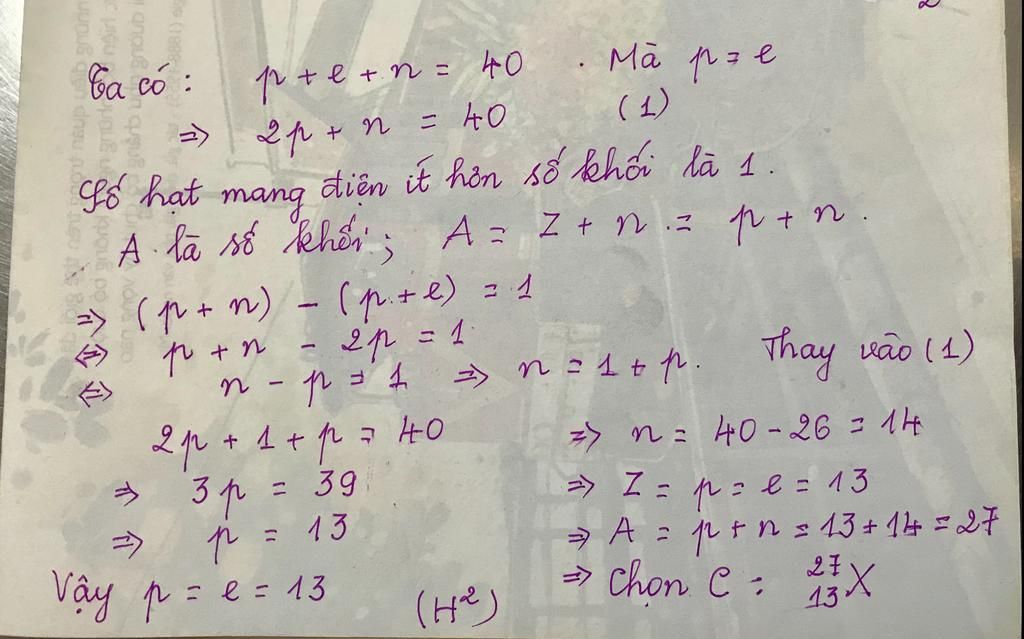 Ta có: p + e + n = 40 . Mà p = e
=> 2p + n = 40 (1)
Số hạt mang điện ít hơn số khối là 1.
A là số khối; A = Z + n = p + n.
=> (p + n) - (p + e) = 1
<=> p + n - 2p = 1
<=> n - p = 1 => n = 1 + p. Thay vào (1)
2p + 1 + p = 40
=> 3p = 39
=> p = 13
Vậy p = e = 13 (H²)
=> n = 40 - 26 = 14
=> Z = p = e = 13
=> A = p + n = 13 + 14 = 27
=> Chọn C : ²⁷₁₃X